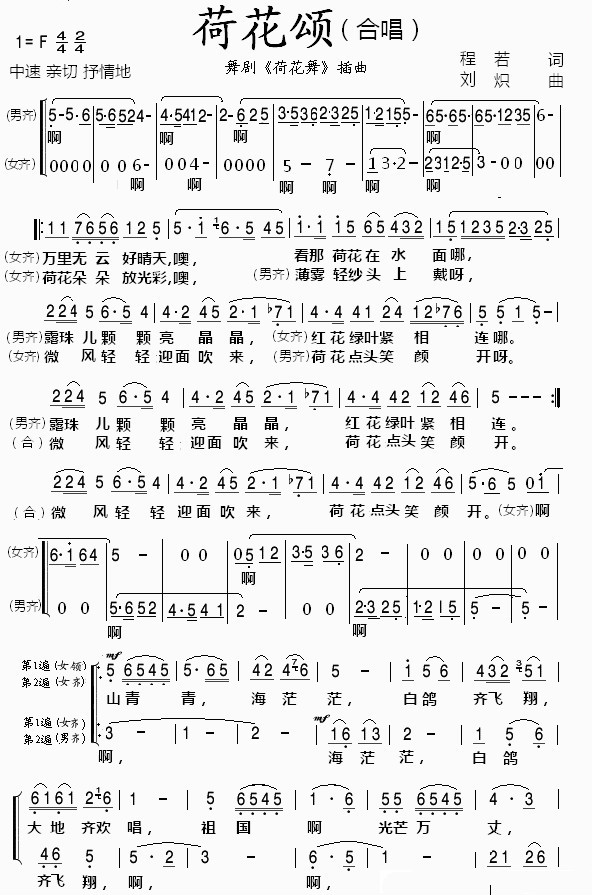 荷花颂（合唱）
1= F 4/4 2/4
中速 亲切 抒情地
舞剧《荷花舞》插曲
程若 词
刘炽 曲
(男齐) 5 - 5 · 6 5·6524- 4·5412- 2-625 3·5362·325 1·2155- 65·65·65·651235 6-
啊 啊 啊
(女齐) 0000 006- 004- 0000 5 - 7 - 13·2- 2312·5 3-00 00
啊 啊 啊 啊 啊
117656 125 5·1 6·5 45 1·1 1 565432 151235 2·325
(女齐) 万里无 云 好晴天,噢， 看那 荷花在 水 面哪，
(女齐) 荷花朵 朵 放光彩,噢， (男齐) 薄雾 轻纱头 上 戴呀，
224 5 6·5 4 5 4·2 45 2·1 ♭71 4·4 42 4 24 12♭76 5 5 1 5 -
(男齐) 露珠 儿颗 颗亮 晶晶， (女齐) 红花绿叶紧 相 连哪。
(女齐) 微 风轻 轻迎面吹来， (男齐) 荷花点头笑 颜 开呀。
224 5 6·5 4 5 4·2 45 2·1 ♭71 4·4 42 12 46 5 - - -
(男齐) 露珠 儿颗 颗 亮 晶晶， 红花绿叶 紧 相 连。
(合) 微 风轻 轻 迎面吹来， 荷花点头笑 颜 开。
224 5 6·5 4 5 4·2 45 2·1 ♭71 4·4 42 12 46 5·6 5 01
(合) 微 风轻 轻 迎面吹来， 荷花点头笑 颜 开。(女齐) 啊
(女齐) 6·1 64 5 - 0 0 05 12 3·5 36 2 - 0 0 0 0 0 0
啊
(男齐) 0 0 5·652 4·541 2 - 0 0 2·3 25 1·2 15 5 - 5 -
啊 啊
mf
第1遍 (女领)
第2遍 (女齐) 5 6545 5·65 42 4·76 5 - 1 56 432 3·51
山青 青， 海茫 茫， 白鸽 齐飞翔，
mf
第1遍 (女齐)
第2遍 (男齐) 3 - 1 - 2 - 16 16 5 - 2 4
啊， 海茫 茫， 白鸽
6161 2·16 1 - 5 6545 1·6 5 5 6545 2 -
大地 齐欢 唱， 祖国 啊 光芒万 丈，
46 5 5·2 1 3 - 1 - 6·5 1 2 4 26
齐飞 翔，啊 啊，